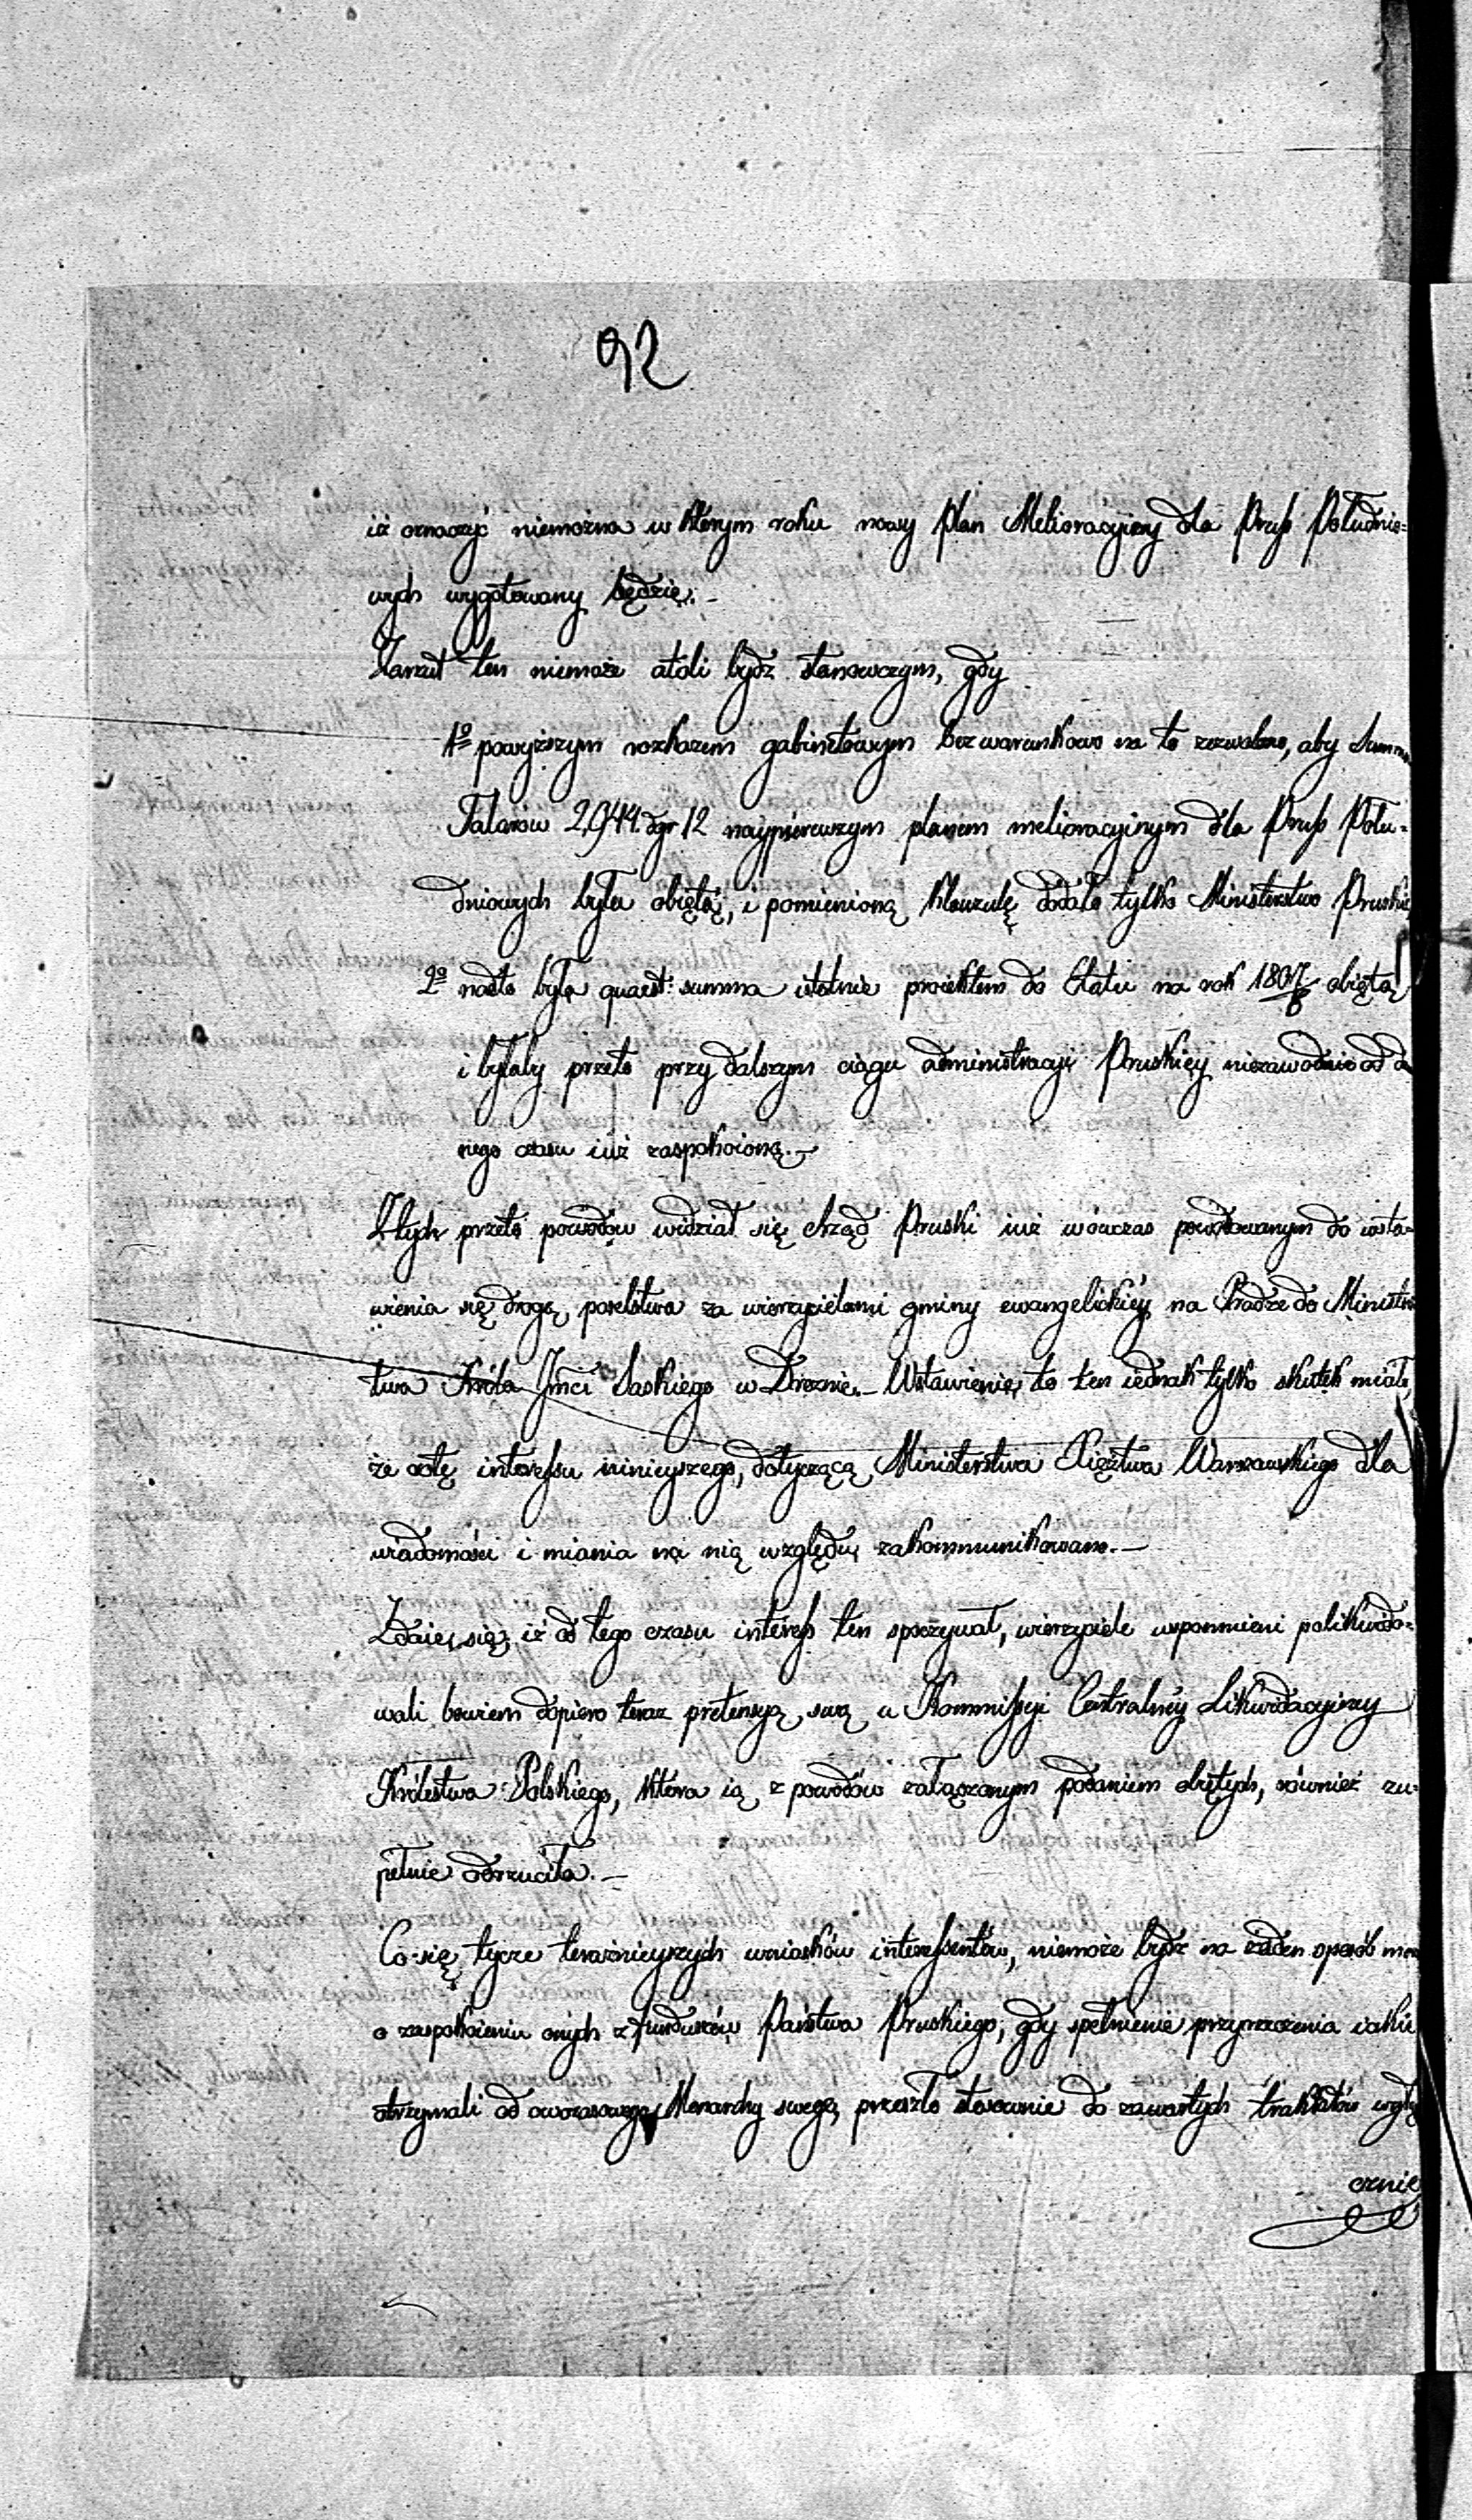 92
iż oznaczyć niemożna w którym roku nowy plan Melioracyjny dla Pruss Południo=
wych wygotowany będzie.-
Zarzut ten niemoże atoli bydź stanowczym, gdy
1º powyższym rozkazem gabinetowym bezwarunkowo na to zezwolono, aby Summa
Talarow 2,944. dgr 12 naypierwszym planem melioracyinym dla Pruss Połu-
dniowych była obiętą, i pomienioną klauzulę dodało tylko Ministerstwo Pruskie
2º nadto była quaest: summa istotnie proiektem do Etatu na rok 1807/8 obiętą
i byłaby przeto przy dalszym ciągu administracji Pruskiey niezawodnie od da
nego czasu iuż zaspokoioną.-
Z tych przeto powodów widział się rząd Pruski iuż wówczas powodowanym do wsta-
wienia się drogą poselstwa za wierzycielami gminy ewangelickiey na Pradze do Ministers
twa Króla Jmci Saskiego w Dreznie.- Wstawienie to ten iednak tylko skutek miało,
że notę interessu ninieyszego, dotyczącą Ministerstwu Xięztwa Warszawskiego dla
wiadomości i miania na nią względu zakommunikowano.-
Zdaie się, iż od tego czasu interess ten spoczywał, wierzyciele wspomnieni polikwido-
wali bowiem dopiero teraz pretensyą swą u Kommissyi Centralney Likwidacyiney
Królestwa Polskiego, która ią z powodów załączonym podaniem obiętych, również zu-
pełnie odrzuciła.-
Co się tycze teraźnieyszych wniosków interessentów, niemoże bydź na żaden sposób mowa
o zaspokoieniu onych z funduszów Państwa Pruskiego, gdy spełnienie przyrzeczenia iakie
otrzymali od owczasowego Monarchy swego, przeszło stosownie do zawartych traktatów wyłą
cznie